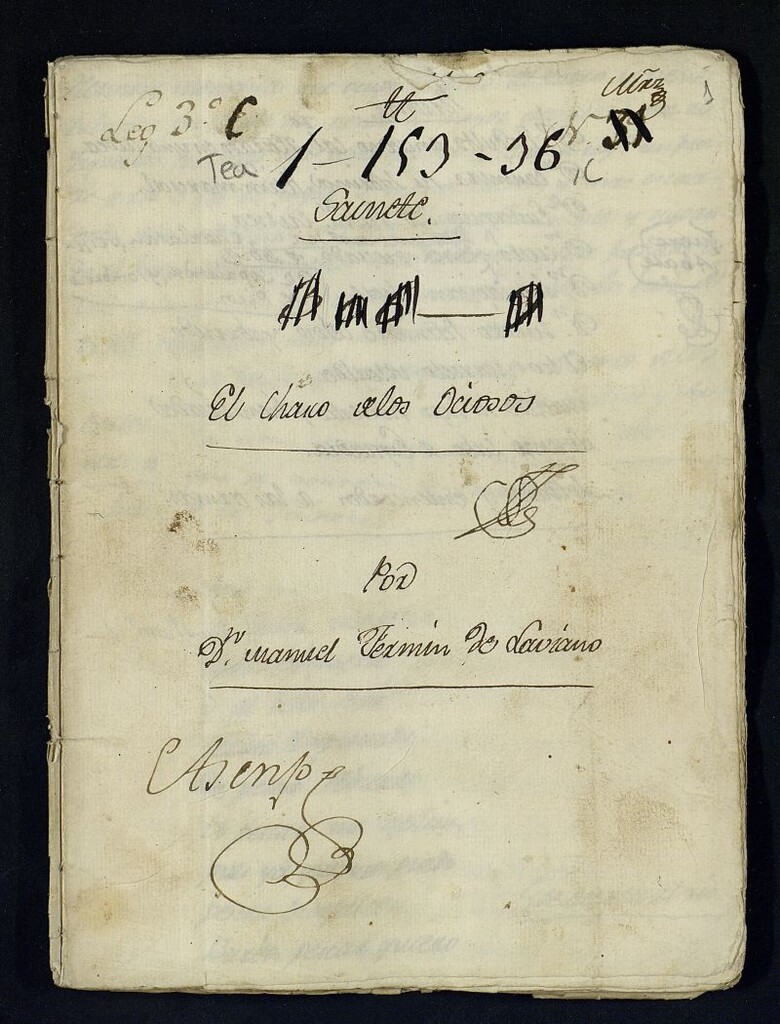 Leg 3º C
Tea 1-153-36
Sainete.
El chasco de los Ociosos
Por
Dn. Manuel Fermin de Laviano